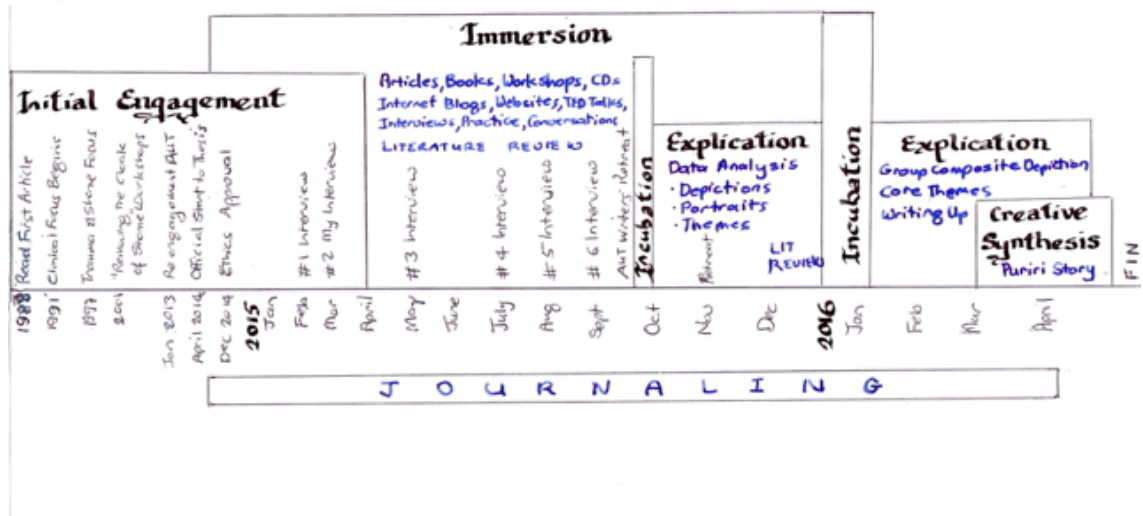 Immersion
Initial Engagement
Articles, Books, Workshops, CDs
Internet Blogs, Websites, TED Talks,
Interviews, Practice, Conversations
LITERATURE REVIEW
Read First Article
Clinical Focus Begins
Trauma & Shame Focus
"Removing the Cloak
of Shame" Workshops
Re engagement AUT
Official Start to Thesis
Ethics Approval
#1 Interview
#2 My Interview
#3 Interview
#4 Interview
#5 Interview
#6 Interview
AUT Writers' Retreat
Incubation
Explication
Data Analysis
· Depictions
· Portraits
· Themes
Retreat
LIT
REVIEW
Incubation
Explication
Group Composite Depiction
Core Themes
Writing Up
Creative
Synthesis
Puriri Story
FIN
1991
1997
2001
Jan 2013
April 2014
Dec 2014
2015
Jan
Feb
Mar
April
May
June
July
Aug
Sept
Oct
Nov
Dec
2016
Jan
Feb
Mar
April
JOURNALING